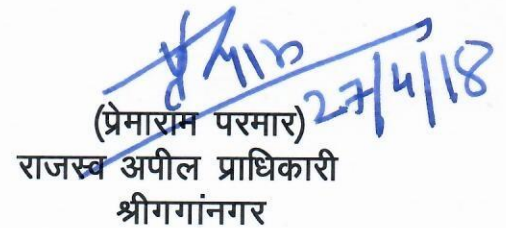 27/4/18
(प्रेमाराम परमार)
राजस्व अपील प्राधिकारी
श्रीगगांनगर